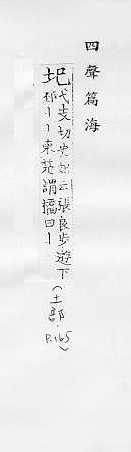 四聲篇海
圯
弋支切史記云張良步遊下
邳丨丨東楚謂橋曰丨
(土部. P.165)